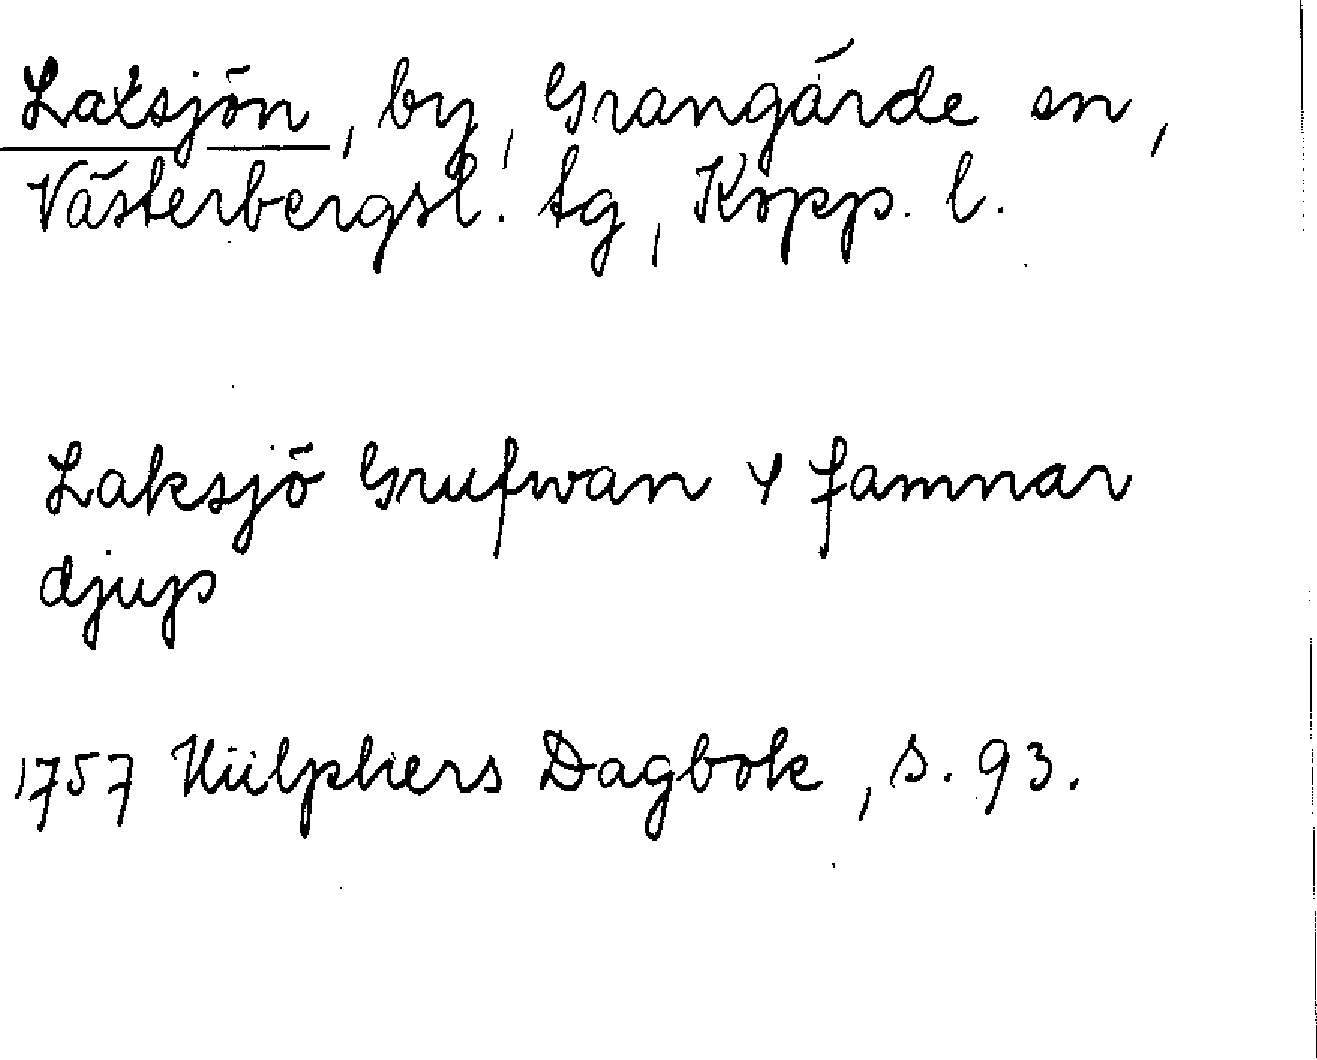 Laxsjön, by, Grangärde sn,
Västerbergsl. tg, Kopp. l.
Laksjö Grufwan 4 famnar
djup
1757 Hülphers Dagbok, s. 93.